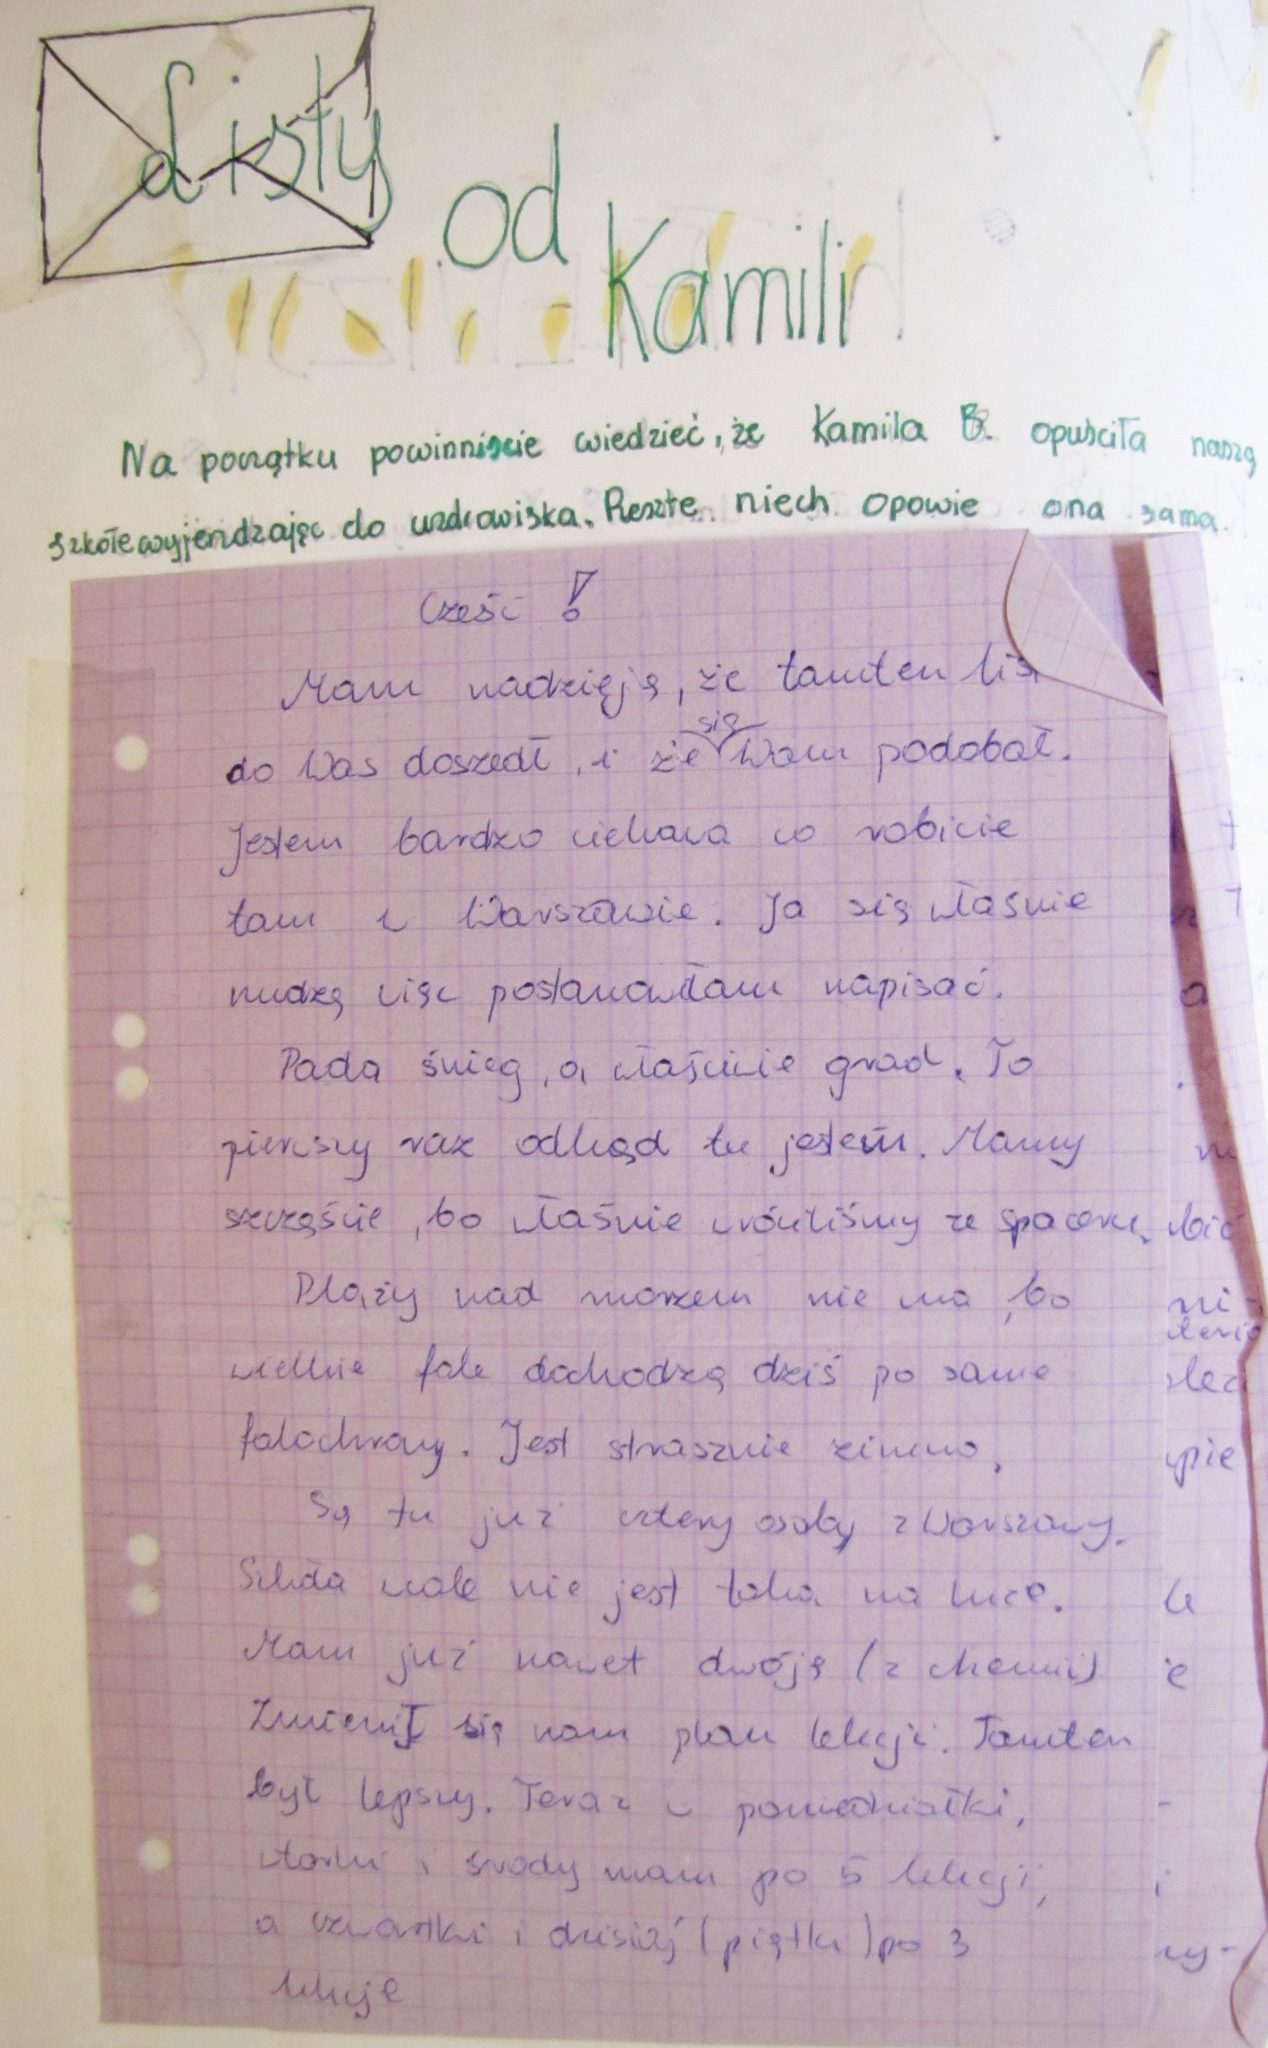 Listy
od
Kamili
Na początku powinniście wiedzieć, że Kamila B. opuściła naszą
szkołę wyjendzając do uzdrowiska. Resztę niech opowie ona sama.
Cześć!
Mam nadzieję, że tamten lis
do Was doszedł, i że się Wam podobał.
Jestem bardzo ciekawa co robicie
tam w Warszawie. Ja się właśnie
nudzę więc postanowiłam napisać.
Pada śnieg, a właściwie grad. To
pierwszy raz odkąd tu jestem. Mamy
szczęście, bo właśnie wróciliśmy ze spaceru.
Plaży nad morzem nie ma, bo
wielkie fale dochodzą dziś po same
falochrony. Jest strasznie zimno.
Są tu już cztery osoby z Warszawy.
Szkoła wcale nie jest taka na luzie.
Mam już nawet dwóję (z chemii)
Zmienił się nam plan lekcji. Tamten
był lepszy. Teraz w poniedziałki,
wtorki i środy mam po 5 lekcji,
a czwartki i dzisiaj (piątki) po 3
lekcje
bić
pie